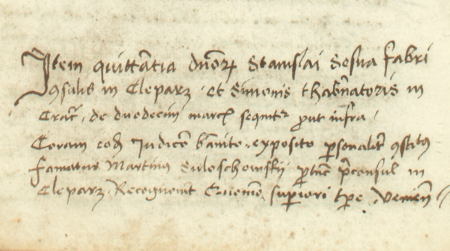 Item quittantia dnor Stanislai Sosna fabri
qsulis in Cleparz. et Simonis thabnatoris in
Crac. de duodecim march sequitr prout infra.
Coram eod Iudico banito. exposito personalit qstitus
famatus Martinus Suloschowskj ptuc pconsul in
Cleparz. Recognovit superiori tpe